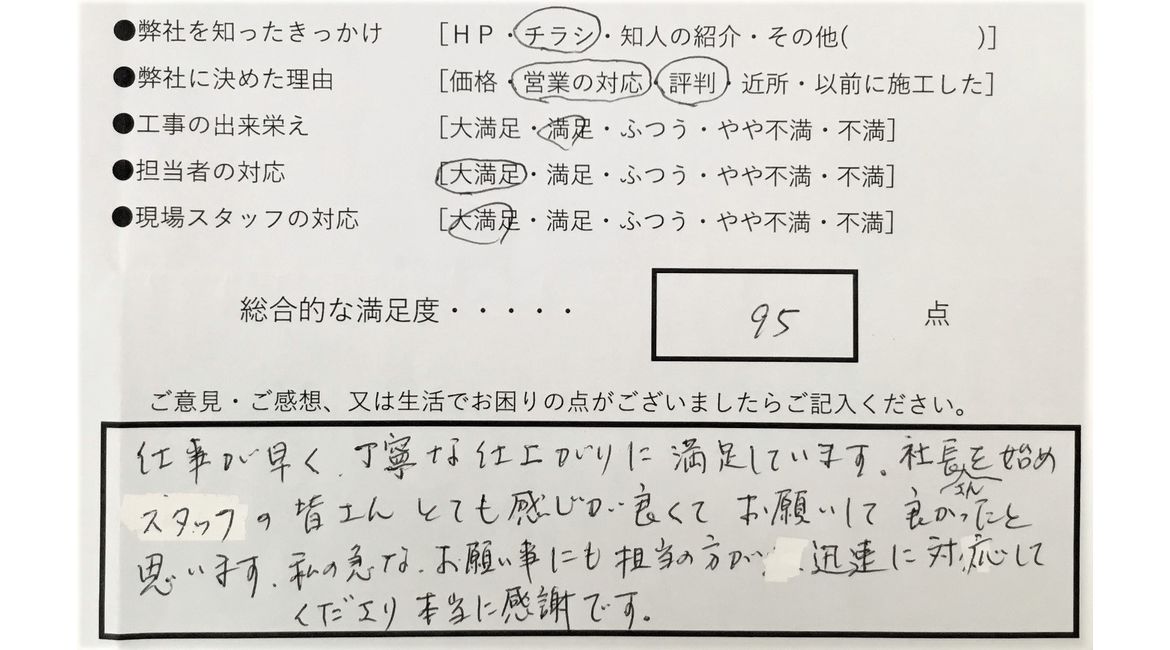 ●弊社を知ったきっかけ [ＨＰ・チラシ・知人の紹介・その他( )]
●弊社に決めた理由 [価格・営業の対応・評判・近所・以前に施工した]
●工事の出来栄え [大満足・満足・ふつう・やや不満・不満]
●担当者の対応 [大満足・満足・ふつう・やや不満・不満]
●現場スタッフの対応 [大満足・満足・ふつう・やや不満・不満]
総合的な満足度・・・・・ 95 点
ご意見・ご感想、又は生活でお困りの点がございましたらご記入ください。
仕事が早く、丁寧な仕上がりに満足しています。社長さんを始め
スタッフの皆さんとても感じが良くてお願いして良かったと
思います。私の急な、お願い事にも担当の方が、迅速に対応して
くださり本当に感謝です。